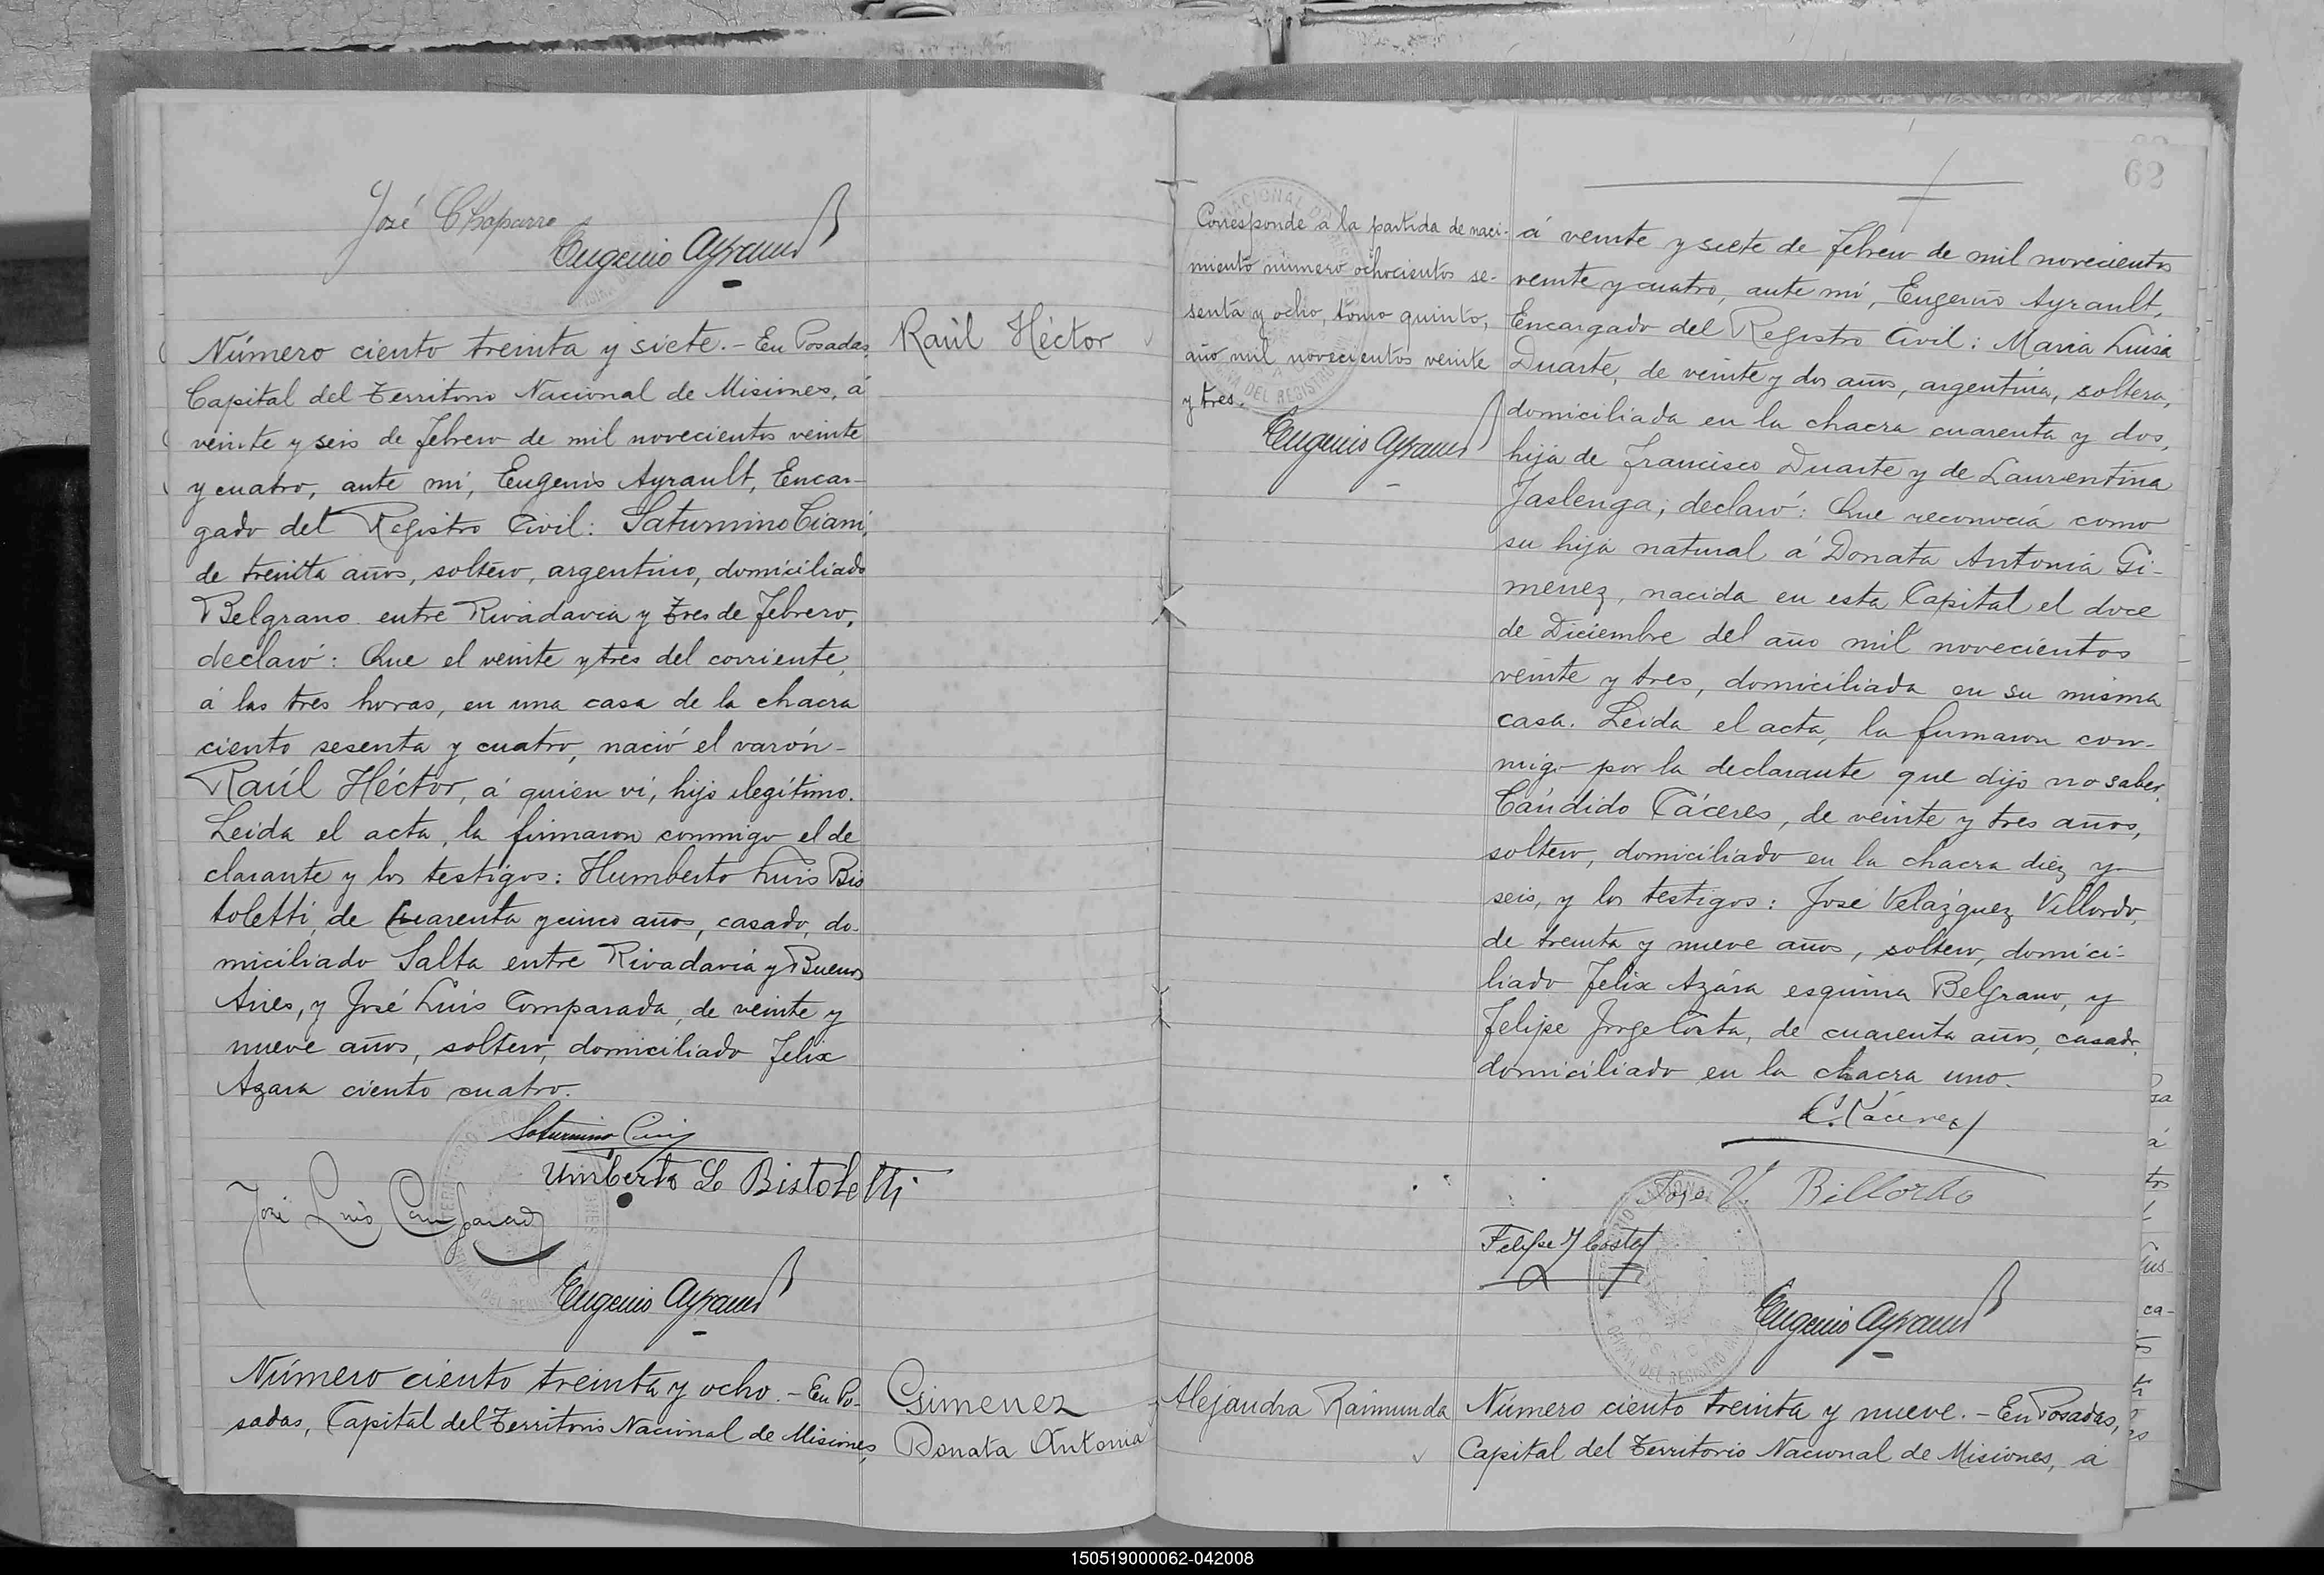 José Chaparro
Eugenio Ayrault
Número ciento treinta y siete. - En Posadas,
Capital del Territorio Nacional de Misiones, á
veinte y seis de febrero de mil novecientos veinte
y cuatro, ante mi, Eugenio Ayrault, Encar-
gado del Registro Civil: Saturnino Ciani,
de treinta años, soltero, argentino, domiciliado
Belgrano entre Rivadavia y Tres de Febrero,
declaró: Que el veinte y tres del corriente,
á las tres horas, en una casa de la chacra
ciento sesenta y cuatro, nació el varón-
Raúl Héctor, á quien vi, hijo ilegítimo.
Leida el acta, la firmaron conmigo el de
clarante y los testigos: Humberto Luis Bis
toletti, de cuarenta y cinco años, casado, do-
miciliado Salta entre Rivadavia y Buenos
Aires, y José Luis Comparada, de veinte y
nueve años, soltero, domiciliado Felix
Azara ciento cuatro.
Saturnino
Umberto L. Bistoletti
José Luis Comparada
Eugenio Ayrault
Número ciento treinta y ocho. - En Po-
sadas, Capital del Territorio Nacional de Misiones,
Raúl Héctor
Gimenez
Donata Antonia
62
Corresponde a la partida de naci-
miento número ochocientos se-
senta y ocho, tomo quinto,
año mil novecientos veinte
y tres.
Eugenio Ayrault
á veinte y siete de febrero de mil novecientos
veinte y cuatro, ante mi, Eugenio Ayrault,
Encargado del Registro Civil: Maria Luisa
Duarte, de veinte y dos años, argentina, soltera,
domiciliada en la chacra cuarenta y dos,
hija de Francisco Duarte y de Laurentina
Jaslenga; declaró: Que reconocia como
su hija natural á Donata Antonia Gi-
menez, nacida en esta Capital el doce
de Diciembre del año mil novecientos
veinte y tres, domiciliada en su misma
casa. Leida el acta, la firmaron con-
migo por la declarante que dijo no saber,
Cándido Cáceres, de veinte y tres años,
soltero, domiciliado en la chacra diez y
seis, y los testigos: José Velázquez Villordo,
de treinta y nueve años, soltero, domici-
liado Felix Azára esquina Belgrano, y
Felipe Jorge Costa, de cuarenta años, casado,
domiciliado en la chacra uno.
C. Cáceres
José V. Billordo
Felipe J Costa
Eugenio Ayrault
Alejandra Raimunda
Número ciento treinta y nueve. - En Posadas,
Capital del Territorio Nacional de Misiones, á
150519000062-042008